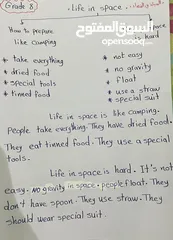 Grade 8
. life in space .
How to prepare
like camping
is hard
* take everything
* dried food
* special tools
* tinned food
* not easy
* no gravity
* float
* use a straw
* special suit
السوق المفتوح
opensooq.com
Life in space is like camping.
People take everything. They have dried food.
They eat tinned food. They use a special
tools.
Life in space is hard. It's not
easy. no gravity in space. people float. They
don't have spoon. They use straw. They
should wear special suit.